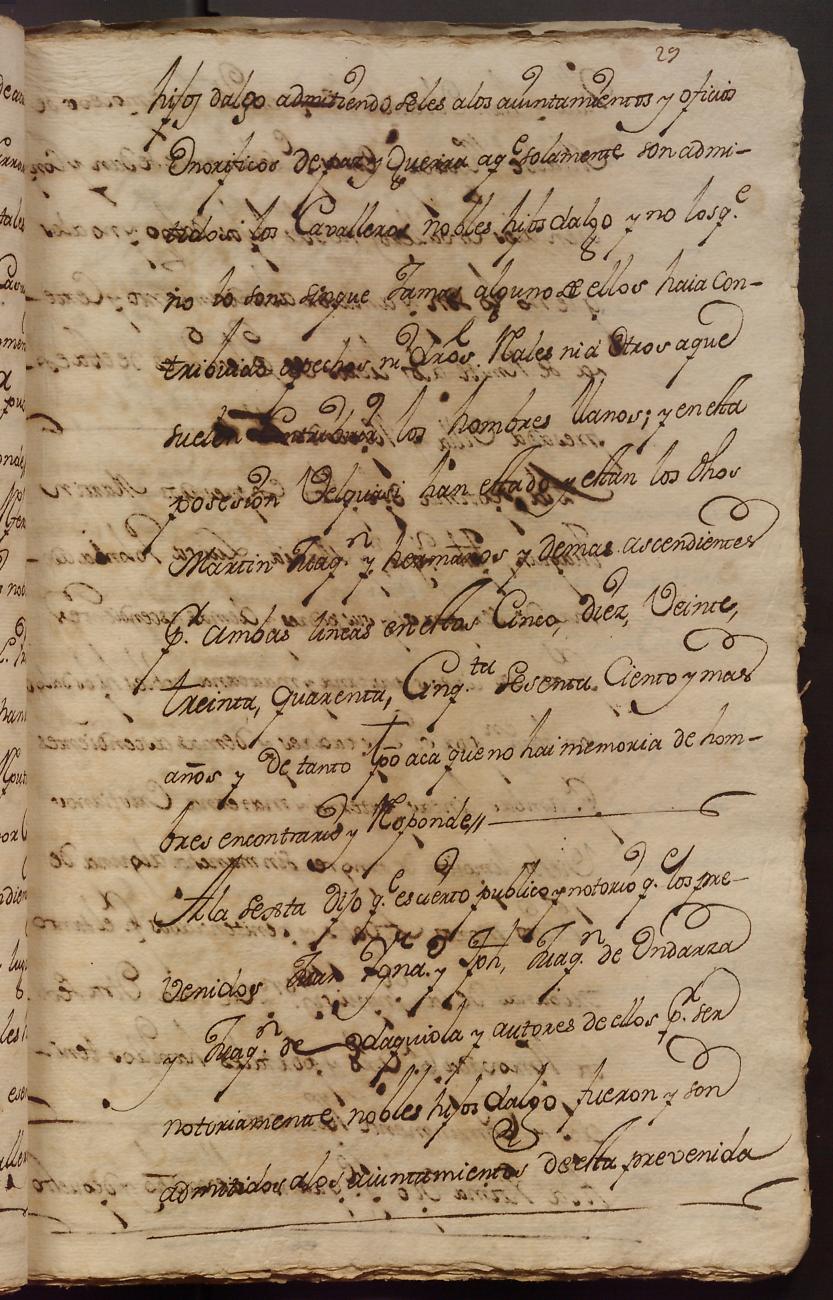 29
hijos dalgo admitiendoseles alos aiuntamientos y oficios
Onorificos de paz y Guerra aqe solamente son admi-
tidos los Cavalleros nobles hijos dalgo y no los q.e
no lo son sin que Jamas alguno de ellos haia con-
tribuido apechos ni drõs Rales ni à Otros aque
suelen Contribuir los hombres llanos; y en esta
posesion Velquasi han estado y estan los dhos
Martin Juaq.n y hermanos y demas ascendientes
p.r ambas lineas en estos Cinco, diez, Veinte,
treinta, quarenta, Cinq.ta Sesenta Ciento y mas
años y de tanto tpõ aca que no hai memoria de hom-
bres encontrario y Responde//
Ala sexta dijo q.e es cierto publico y notorio q.e los pre-
venidos Juan Igna.o y Jph, Juaq.n de Undarza
y Juaq.n de Odaquiola y autores de ellos p.r ser
notoriamente nobles hijos dalgo fueron y son
admitidos alos aiuntamientos de esta prevenida